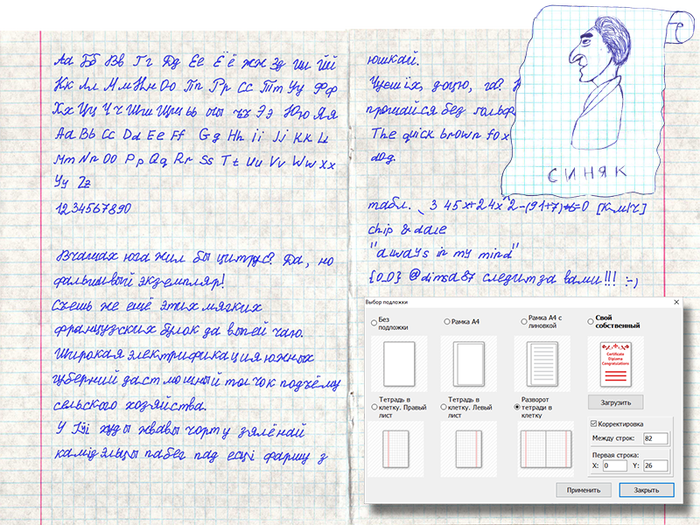 Аа Бб Вв Гг Дд Ее Ёё Жж Зз Ии Йй
Кк Лл Мм Нн Оо Пп Рр Сс Тт Уу Фф
Хх Цц Чч Шш Щщ ьь ыы ъъ Ээ Юю Яя
Aa Bb Cc Dd Ee Ff Gg Hh Ii Jj Kk Ll
Mm Nn OO Pp Qq Rr Ss Tt Uu Vv Ww Xx
Yy Zz
1234567890
В чащах юга жил бы цитрус? Да, но
фальшивый экземпляр!
Съешь же ещё этих мягких
французских булок да выпей чаю.
Широкая электрификация южных
губерний даст мощный толчок подъёму
сельского хозяйства.
У Іўі худы жвавы чорт у зялёнай
камізэльцы пабег пад'есці фаршу з
юшкай.
гов?
прощайся без гольф
The quick brown fox
dog.
табл. 3 45x+24x^2-(91+7)*6=0 [км/ч]
chip & dale
"always in my mind"
{0_0} @dimsa87 следит за вами!!! :-)
СИНЯК
Выбор подложки
Без подложки
Рамка А4
Рамка А4 с линовкой
Свой собственный
Certificate
Diploma
Congratulations
Загрузить
Тетрадь в клетку. Правый лист
Тетрадь в клетку. Левый лист
Разворот тетради в клетку
Корректировка
Между строк: 82
Первая строка:
X: 0 Y: 26
Применить
Закрыть